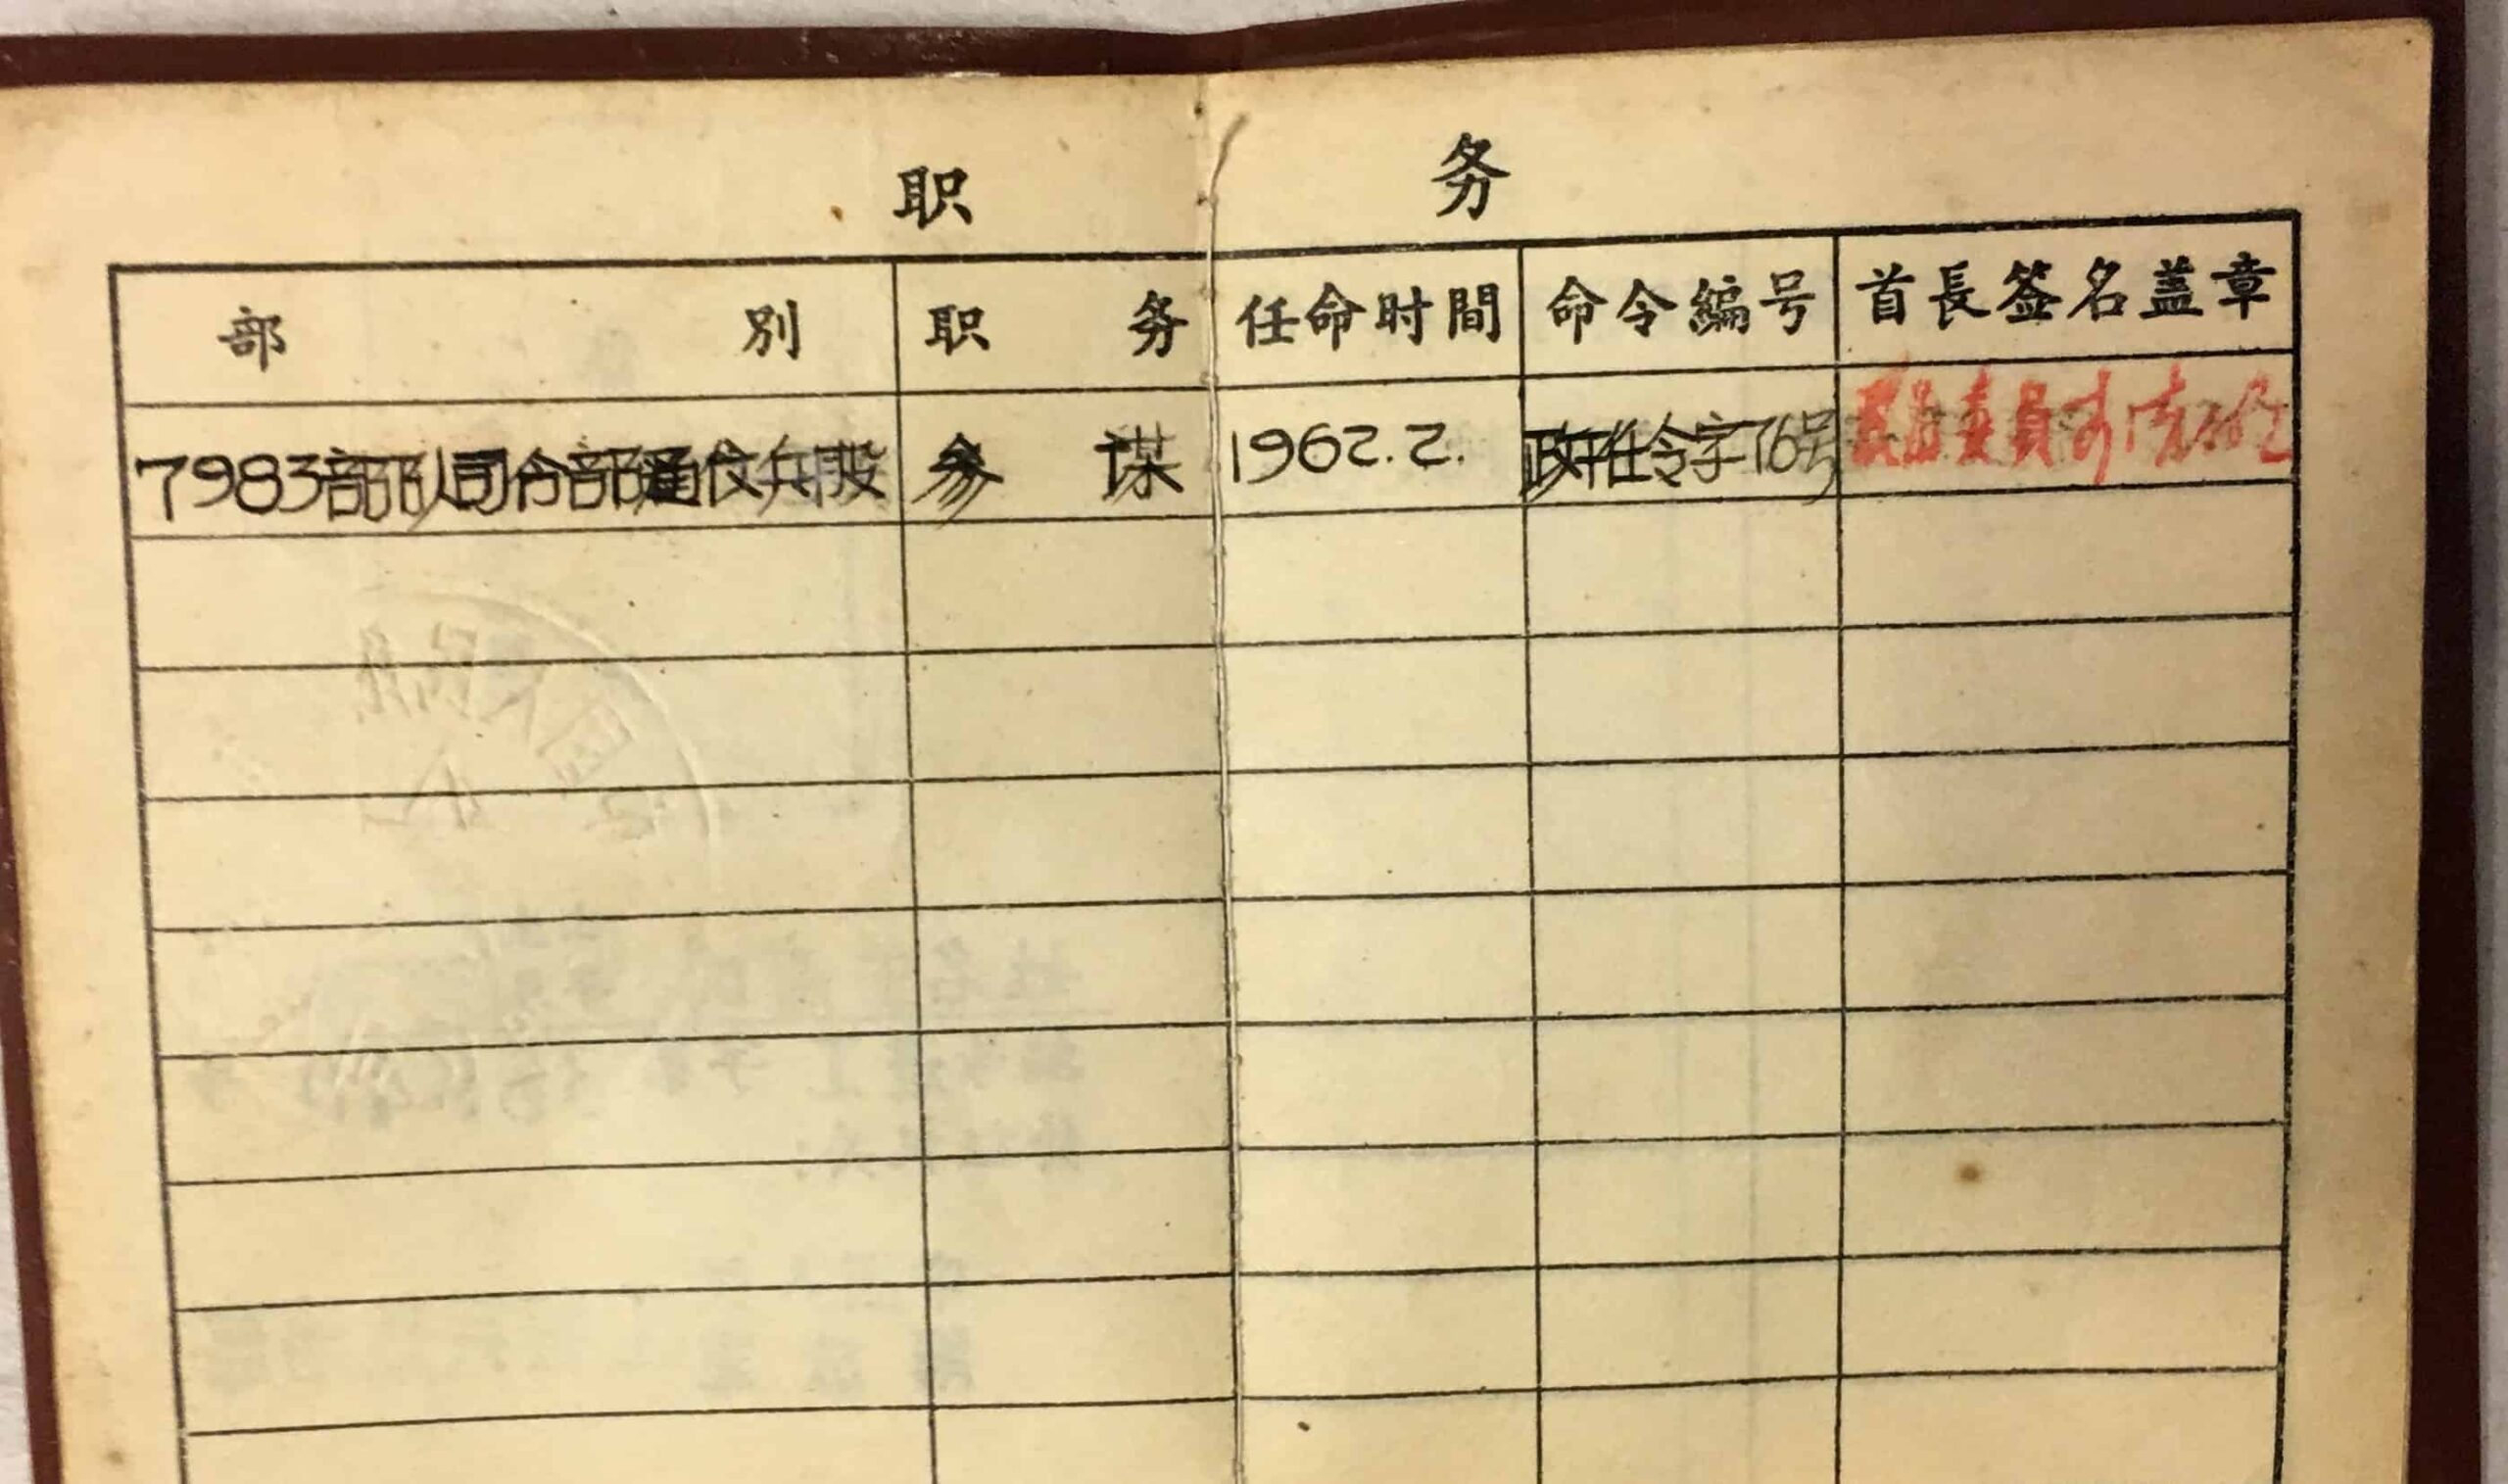 职 务
部 別 职 务 任命时間 命令編号 首長签名盖章
7983部队司令部通信兵股 参 谋 1962.2. 政任令字76号 委員